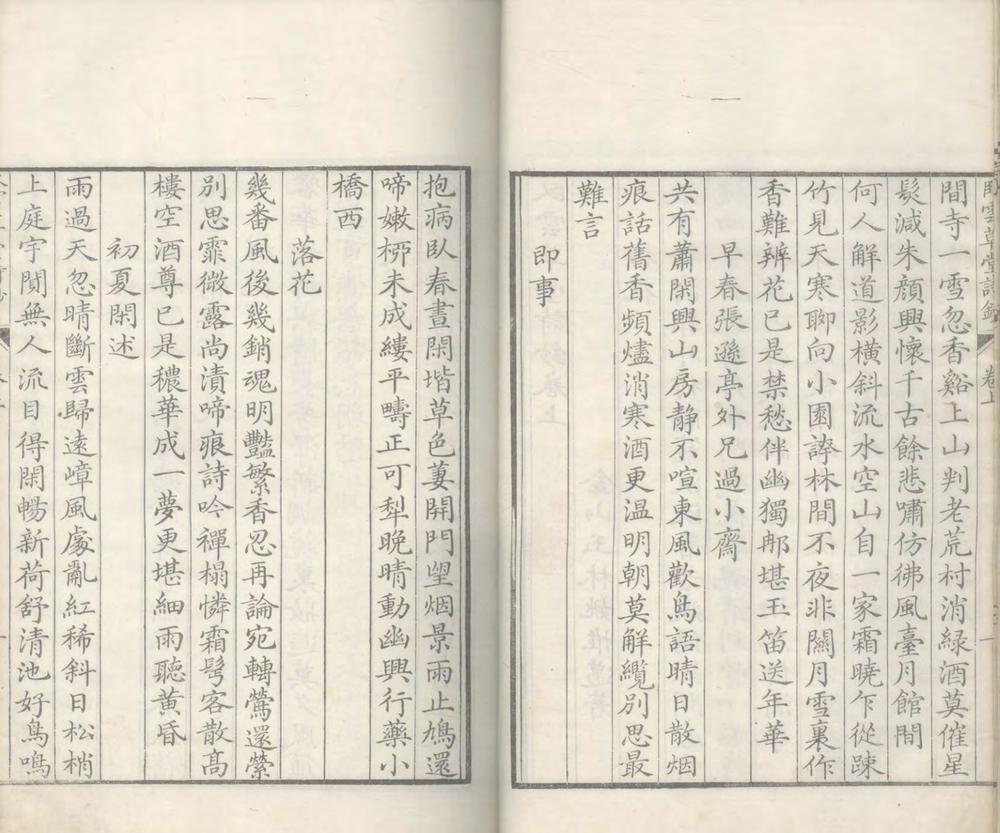 臥雲草堂詩鈔 卷上 一
間寺一雪忽香谿上山判老荒村消緑酒莫催星
髩減朱顔興懷千古餘悲嘯仿彿風臺月館間
何人解道影横斜流水空山自一家霜曉乍從踈
竹見天寒聊向小園誇林間不夜非關月雪裏作
香難辨花已是禁愁伴幽獨郍堪玉笛送年華
早春張遜亭外兄過小齋
共有蕭閑興山房静不喧東風歡鳥語晴日散烟
痕話舊香頻燼消寒酒更温明朝莫解纜别思最
難言
即事
抱病臥春晝閑堦草色萋開門望烟景雨止鳩還
啼嫩桺未成縷平疇正可犁晚晴動幽興行藥小
橋西
落花
幾番風後幾銷魂明豔繁香忍再論宛轉鶯還縈
别思霏微露尚漬啼痕詩吟禪榻憐霜髩客散髙
樓空酒尊已是穠華成一夢更堪細雨聽黃昏
初夏閑述
雨過天忽晴斷雲歸遠嶂風處亂紅稀斜日松梢
上庭宇閴無人流目得閑暢新荷舒清池好鳥鳴